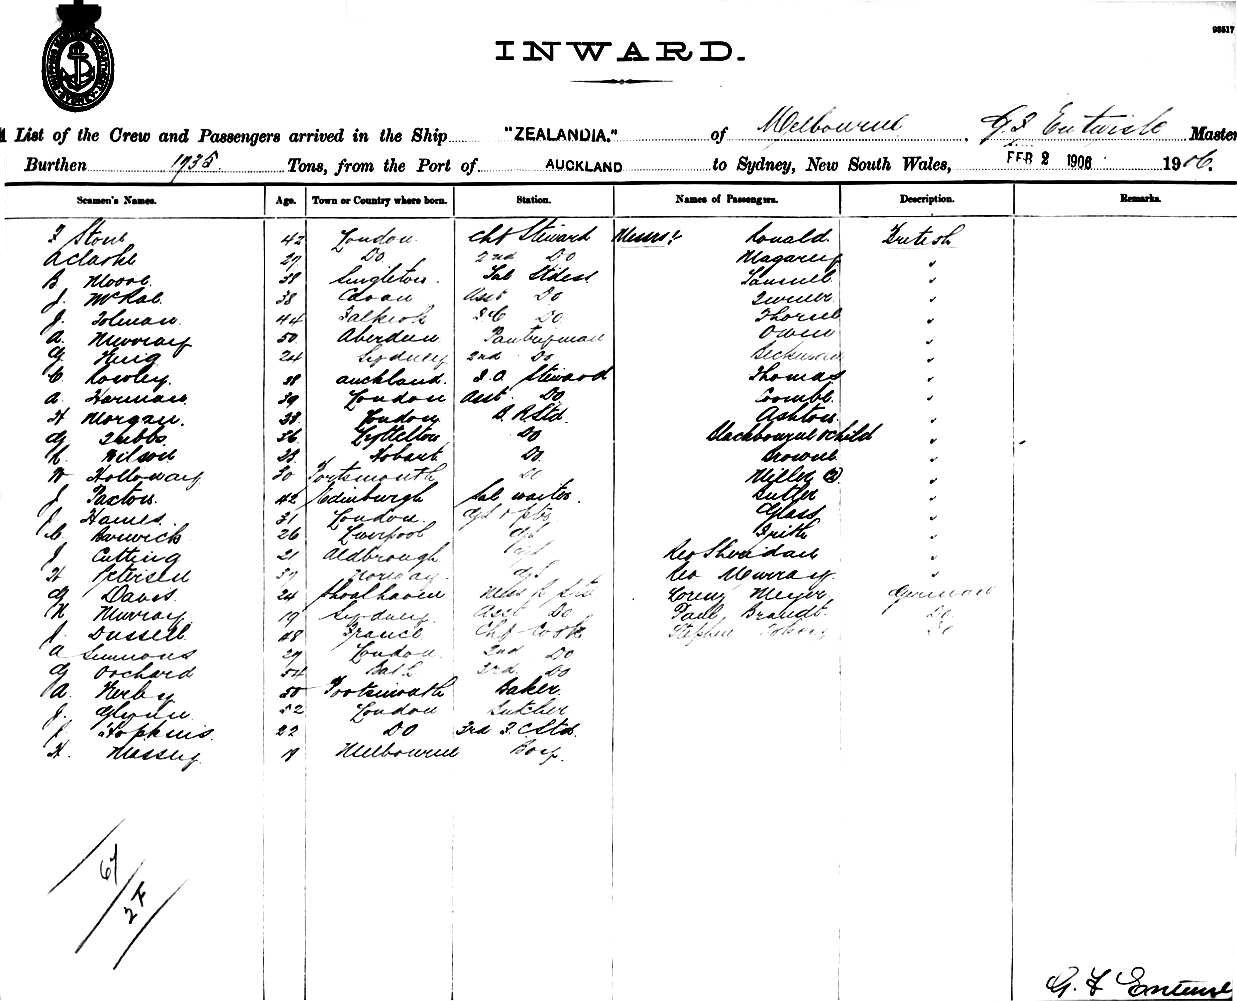 98517
INWARD.
List of the Crew and Passengers arrived in the Ship "ZEALANDIA." of Melbourne, G. F. Entwisle Master
Burthen 1935 Tons, from the Port of AUCKLAND to Sydney, New South Wales, FEB 2 1906 1906.
Seamen's Names. Age. Town or Country where born. Station. Names of Passengers. Description. Remarks.
Stone 42 London Cht Steward Messrs: Ronald British
A Clarke 27 Do 2nd Do Magarey "
B Moore 38 Singleton. Sal Stdess Samuel "
J. McRae 38 Asst Do Turner "
J. Tolman 44 Falkirk Do Thorne "
A. Murray 50 Aberdeen Pantryman Owen "
G. 24 Sydney 2nd Do "
C Rowley. 38 Auckland. S.C. Steward Thomas "
A. Harman 39 London Asst. Do Coombe. "
H Morgan. 38 London B. R Std. Ashton "
G Tubbs 36 Lyttelton Do Blackbourne & child "
Wilson 23 Hobart Do Browne "
W Holloway 30 Portsmouth Do Miller (2) "
J Paxton 42 Edinburgh Sal waiter. Butler "
J Hames. 31 London. Glass "
C 26 Liverpool Frith "
J Cutting 21 Aldbrough Geo Sheridan "
H Petersen 37 Norway. Geo Murray. "
G Davis. 24 Shoalhaven Mess R Std Meyer German
N Murray 19 Sydney. Asst Do Paul Brandt Do
J. Dussell 48 France Chf Cook Stephen Do
A Simmons 29 London. 2nd Do
G Orchard 54 Bath 3rd Do
A. Kerby 50 Portsmouth Baker.
J. Glynn 52 London Butcher
J Hopkins. 22 DO 3rd S. C Std.
H. Massey. Melbourne Boy.
67
27
G. F Entwisle